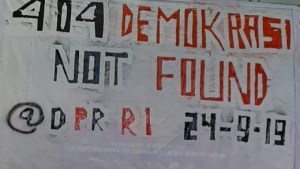 404 DEMOKRASI
NOT FOUND
@DPR RI 24-9-19